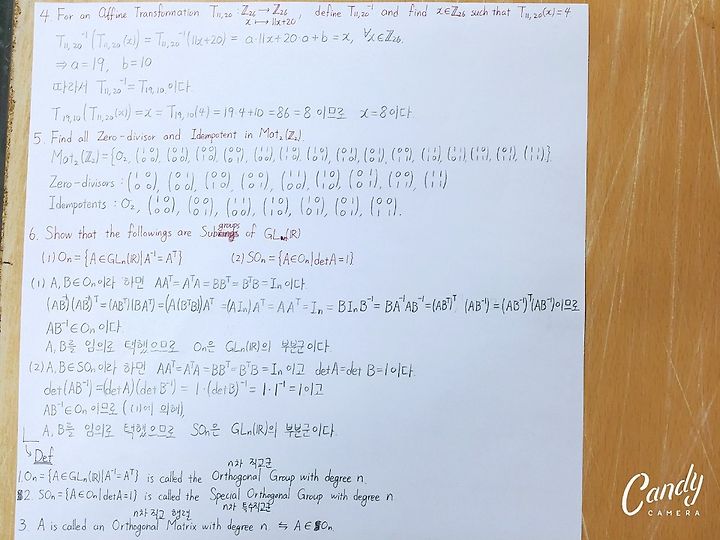 4. For an Affine Transformation T₁₁,₂₀ : ℤ₂₆ → ℤ₂₆, define T₁₁,₂₀⁻¹ and find x∈ℤ₂₆ such that T₁₁,₂₀(x)=4
x ↦ 11x+20
T₁₁,₂₀⁻¹(T₁₁,₂₀(x)) = T₁₁,₂₀⁻¹(11x+20) = a·11x+20·a+b = x, ∀x∈ℤ₂₆.
⇒ a=19, b=10
따라서 T₁₁,₂₀⁻¹ = T₁₉,₁₀ 이다.
T₁₉,₁₀(T₁₁,₂₀(x)) = x = T₁₉,₁₀(4) = 19·4+10 = 86 = 8 이므로 x=8이다.
5. Find all Zero-divisor and Idempotent in Mat₂(ℤ₂)
Mat₂(ℤ₂) = {O₂,
Zero-divisors :
Idempotents : O₂,
6. Show that the followings are Subgroups of GLn(ℝ)
(1) On = {A∈GLn(ℝ)|A⁻¹=Aᵀ} (2) SOn = {A∈On|detA=1}
(1) A, B∈On이라 하면 AAᵀ=AᵀA=BBᵀ=BᵀB=In이다.
(AB⁻¹)(AB⁻¹)ᵀ=(ABᵀ)(BAᵀ)=(A(BᵀB))Aᵀ=(AIn)Aᵀ=AAᵀ=In=BInB⁻¹=BA⁻¹AB⁻¹=(ABᵀ)ᵀ(AB⁻¹)=(AB⁻¹)ᵀ(AB⁻¹)이므로
AB⁻¹∈On이다.
A, B를 임의로 택했으므로 On은 GLn(ℝ)의 부분군이다.
(2) A, B∈SOn이라 하면 AAᵀ=AᵀA=BBᵀ=BᵀB=In이고 detA=det B=1이다.
det(AB⁻¹)=(detA)(det B⁻¹)=1·(detB)⁻¹=1·1⁻¹=1이고
AB⁻¹∈On이므로 ((1)에 의해),
A, B를 임의로 택했으므로 SOn은 GLn(ℝ)의 부분군이다.
Def
n차 직교군
1. On = {A∈GLn(ℝ)|A⁻¹=Aᵀ} is called the Orthogonal Group with degree n.
2. SOn = {A∈On|detA=1} is called the Special Orthogonal Group with degree n.
n차 직교 행렬 n차 특수직교군
3. A is called an Orthogonal Matrix with degree n. ⇆ A∈On.
Candy
CAMERA